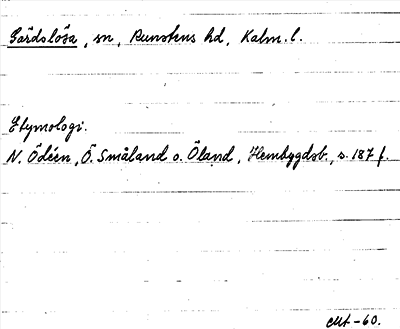 Gärdslösa, sn, Runstens hd, Kalm. l.
Etymologi.
N. Ödéen, Ö. Småland o. Öland, Hembygdsb., s. 187 f.
-60.